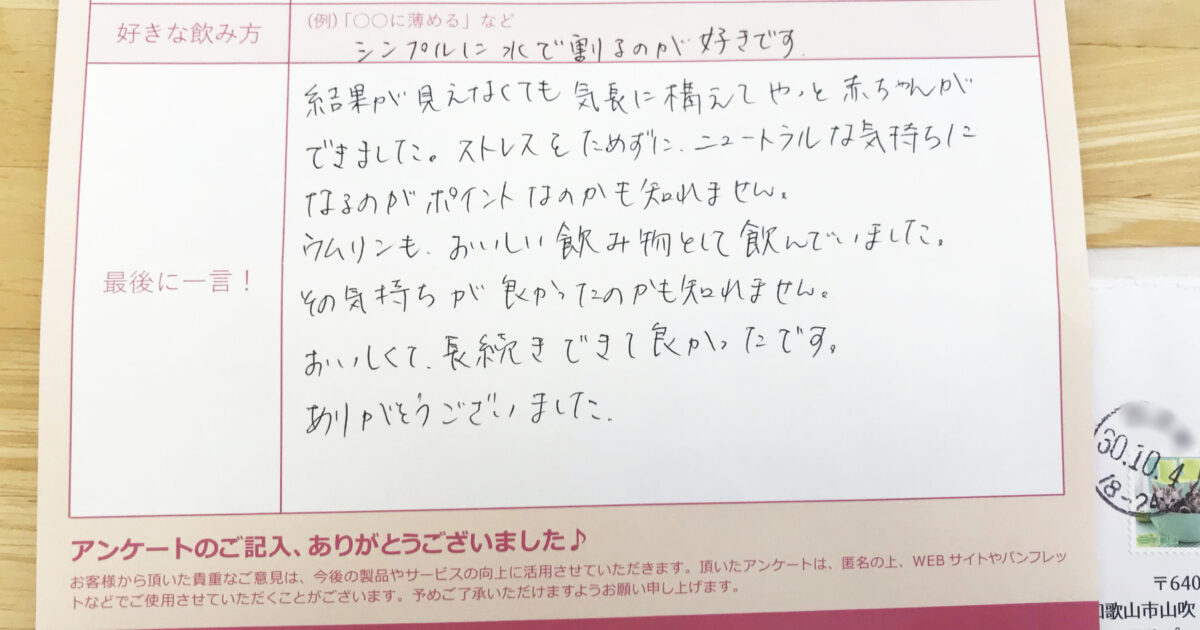 好きな飲み方
(例)「○○に薄める」など
シンプルに水で割るのが好きです.
最後に一言!
結果が見えなくても気長に構えてやっと赤ちゃんが
できました。ストレスをためずに、ニュートラルな気持ちに
なるのがポイントなのかも知れません。
ウムリンも、おいしい飲み物として飲んでいました。
その気持ちが良かったのかも知れません。
おいしくて、長続きできて良かったです。
ありがとうございました.
アンケートのご記入、ありがとうございました♪
お客様から頂いた貴重なご意見は、今後の製品やサービスの向上に活用させていただきます。頂いたアンケートは、匿名の上、WEBサイトやパンフレッ
トなどでご使用させていただくことがございます。予めご了承いただけますようお願い申し上げます。
30.10.4
18-24
〒640
歌山市山吹